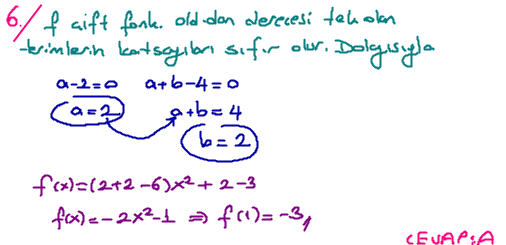 6./ f çift fonk. old.dan derecesi tek olan
terimlerin katsayıları sıfır olur. Dolayısıyla
a-2=0 a+b-4=0
a=2 a+b=4
b=2
f(x)=(2+2-6)x²+2-3
f(x)=-2x²-1 ⇒ f(1)=-3,
CEVAP:A